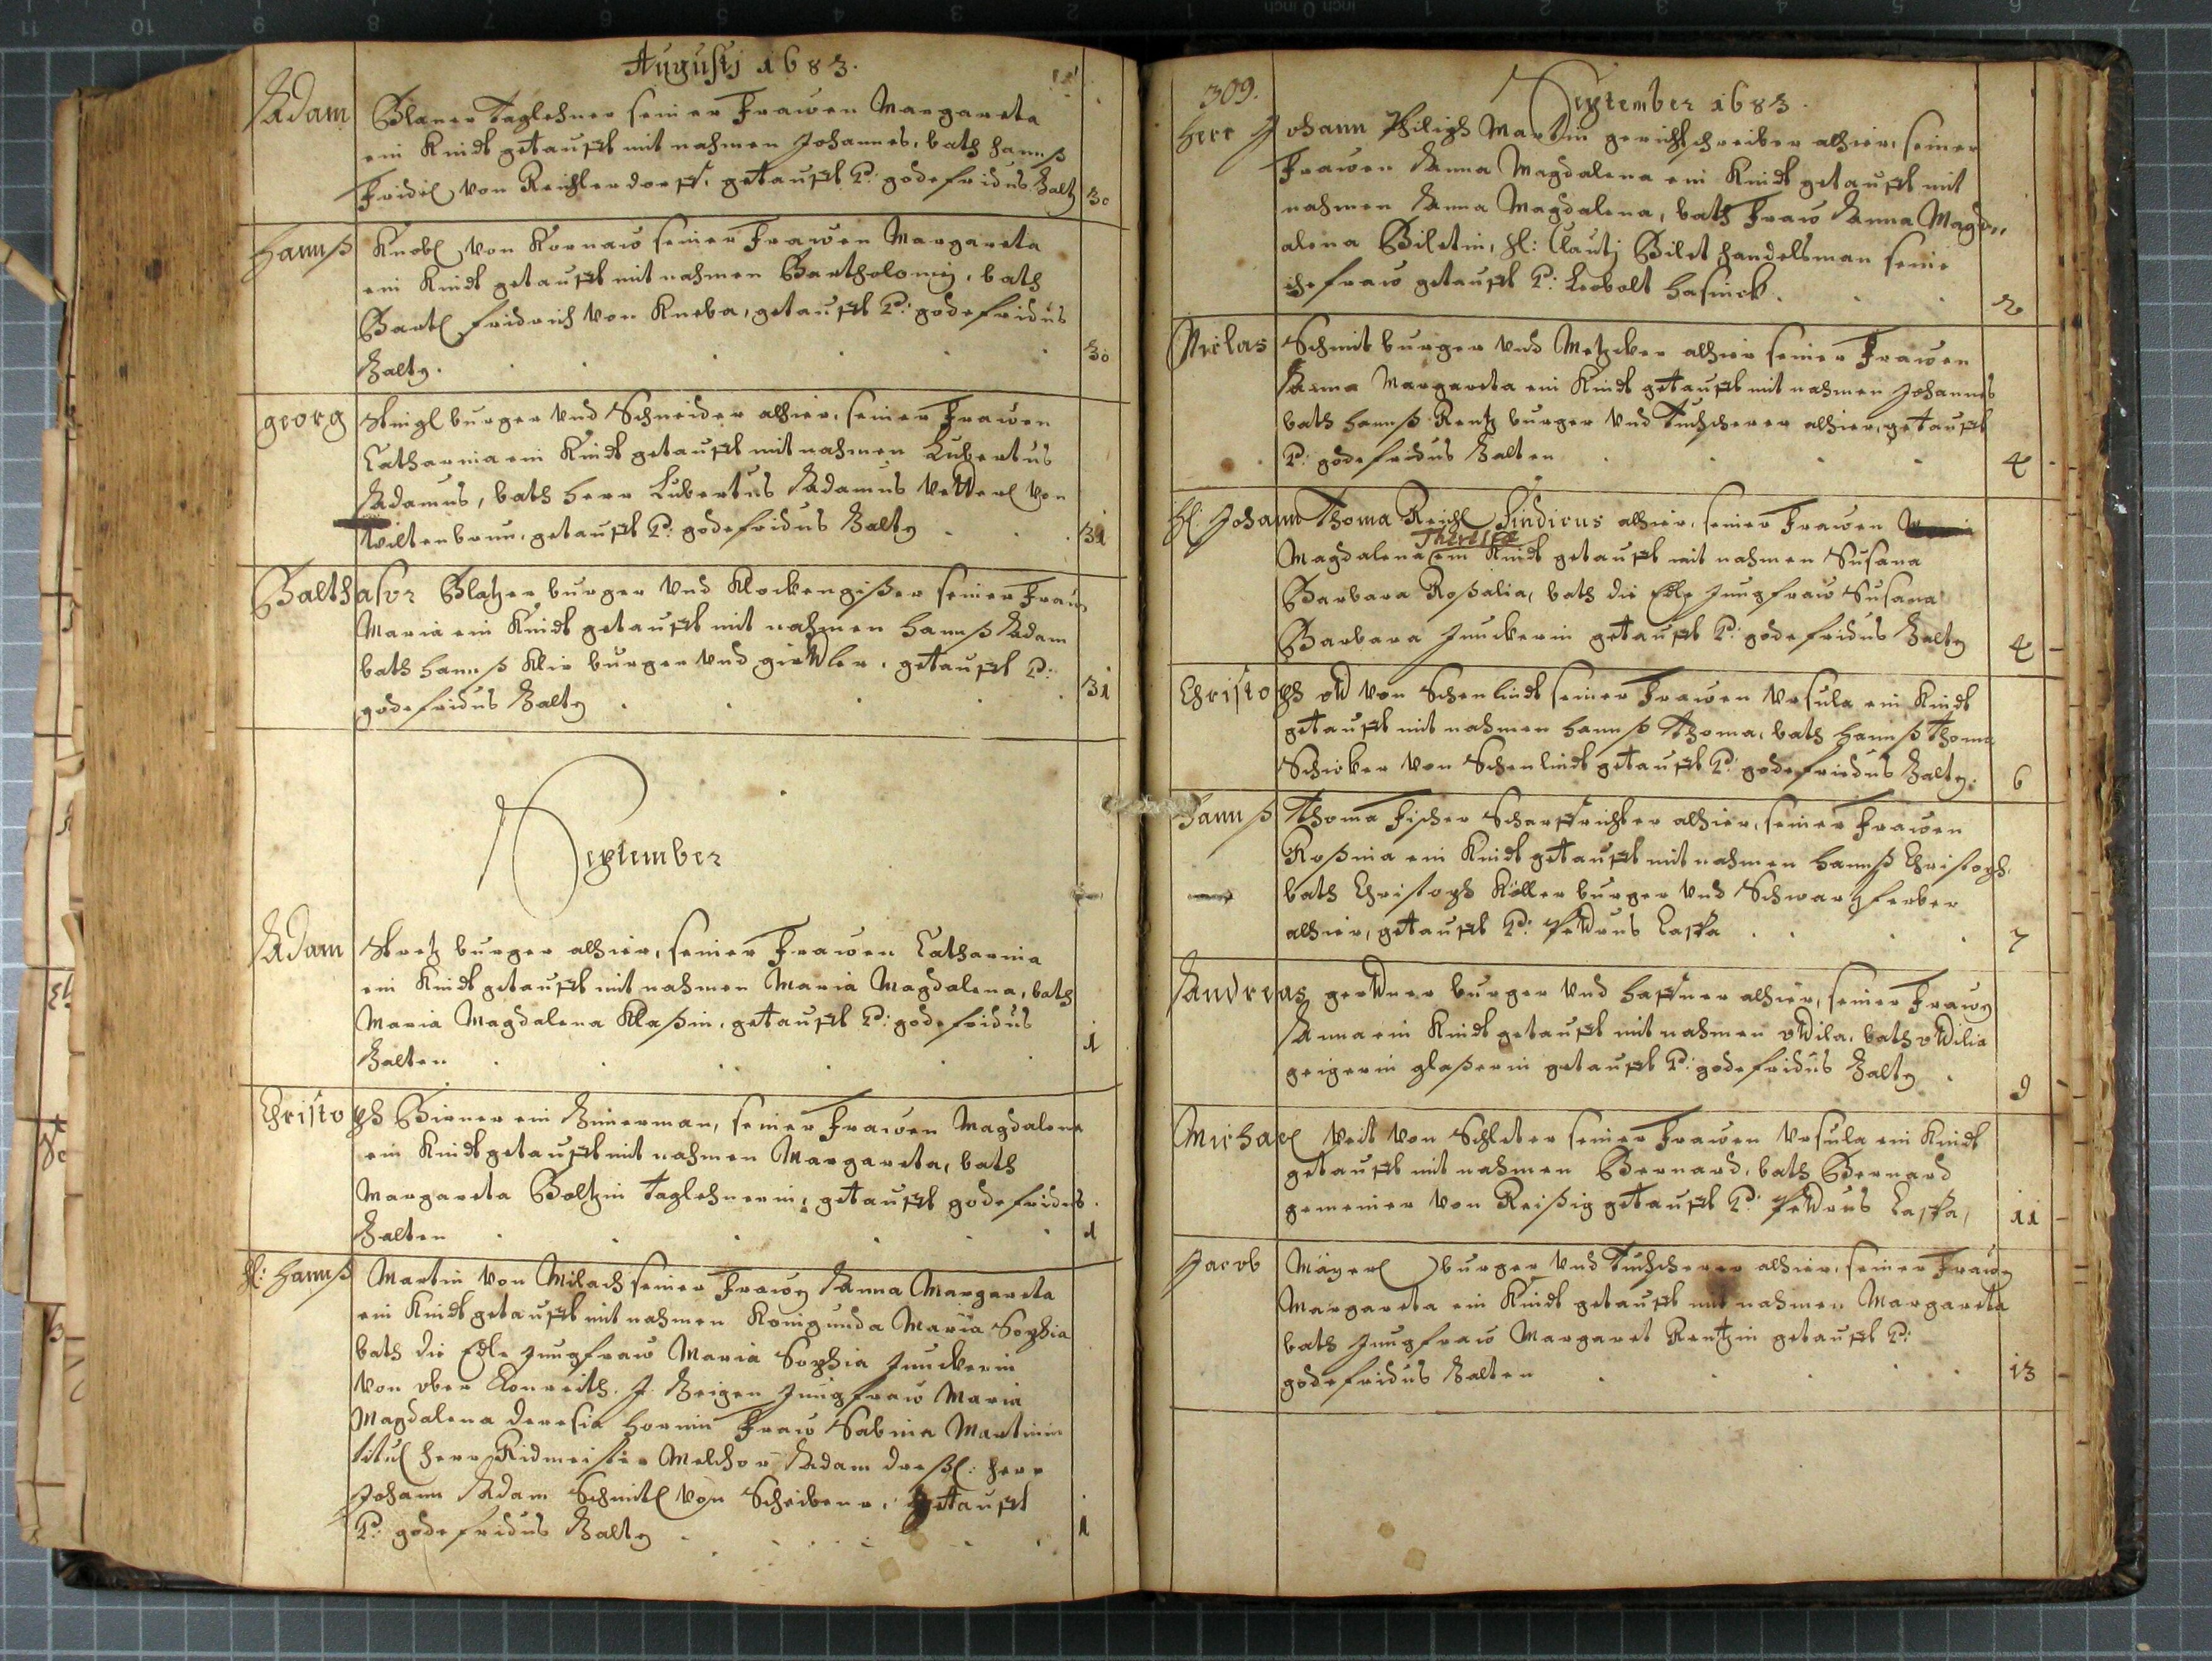 Augustj 1683.
Adam Planer Taglehner seiner Frawen Margareta
ein Kindt getaufft mit nahmen Johannes, bath hannß
Fridl von Reichlerdorff, getaufft P: godefridus Balty 30
Hannß Knobl von Kornaw seiner Frawen Margareta
ein Kindt getaufft mit nahmen Bartholomej, bath
Bartl fridrich von Kneba, getaufft P: godefridus
Balty. 30
georg burger Vnd Schneider alhier, seiner Frawen
Catharina ein Kindt getaufft mit nahmen Lubertus
Adamus, bath herr Lubertus Adamus von
getaufft P: godefridus Balty 31
Balthasar burger Vnd Klockengißer seiner Fraw
Maria ein Kindt getaufft mit nahmen hannß Adam
bath hannß burger Vnd girttler, getaufft P:
godefridus Balty 31
September
Adam burger alhier, seiner Frawen Catharina
ein Kindt getaufft mit nahmen Maria Magdalena, bath
Maria Magdalena Klaßin, getaufft P: godefridus
Balten 1
Christoph Birner ein Zimerman, seiner Frawen Magdalena
ein Kindt getaufft mit nahmen Margareta, bath
Margareta Boltzin Taglehnerin, getaufft godefridus
Balten 1
Hl: Hannß Martin von Milach seiner Frawy Anna Margareta
ein Kindt getaufft mit nahmen Konigunda Maria Sophia
bath die Edle Jungfraw Maria Sophia Junckerin
von ober Konreith. J. Zeigen Jungfraw Maria
Magdalena deresia hornin Fraw Sabina Martinin
titul herr Ridmeister Melchor Adam herr
Johann Adam Schmitl von getaufft
P: godefridus Balty 1
309. September 1683.
Herr Johann Philiph Martin gerichtschreiber alhier, seiner
Frawen Anna Magdalena ein Kindt getaufft mit
nahmen Anna Magdalena, bath Fraw Anna Magd„
alena Biletin, Hl: Clautj Bilet handelsman seine
ehefraw getaufft P: Leobolt 2
Niclas Schmit burger Vnd Metzcker alhier seiner Frawen
Anna Margareta ein Kindt getaufft mit nahmen Johannes
bath hannß Rentz burger Vnd Tuchscherer alhier, getaufft
P: godefridus Balten 4
Hl: Johann Thoma Reichl Sindicus alhier, seiner Frawen
Theresia
Magdalena ein Kindt getaufft mit nahmen Susana
Barbara Roßalia, bath die Edle Jungfraw Susana
Barbara Junckerin getaufft P: godefridus Balty 4
Christoph ott von Schenlindt seiner Frawen Vrsula ein Kindt
getaufft mit nahmen hannß Thoma, bath hannß Thoma
Schicker von Schenlindt getaufft P: godefridus Balty. 6
Hannß Thoma Fischer Scharffrichter alhier, seiner Frawen
Roßina ein Kindt getaufft mit nahmen hannß Christoph.
bath Christoph Köller burger Vnd Schwartzferber
alhier, getaufft P: Pettrus Caffa 7
Andreas gerttner burger Vnd haffner alhier, seiner Frawy
Anna ein Kindt getaufft mit nahmen ottila, bath ottilia
geigerin glaßerin getaufft P: godefridus Balty 9
Michael Veit von Schleter seiner Frawen Vrsula ein Kindt
getaufft mit nahmen Bernard, bath Bernard
gemeiner von Reißig getaufft P: Pettrus Caffa, 11
Jacob Mayerl burger Vnd Tuchscherer alhier, seiner Frawy
Margareta ein Kindt getaufft mit nahmen Margareta
bath Jungfraw Margaret Rentzin getaufft P:
godefridus Balten 13